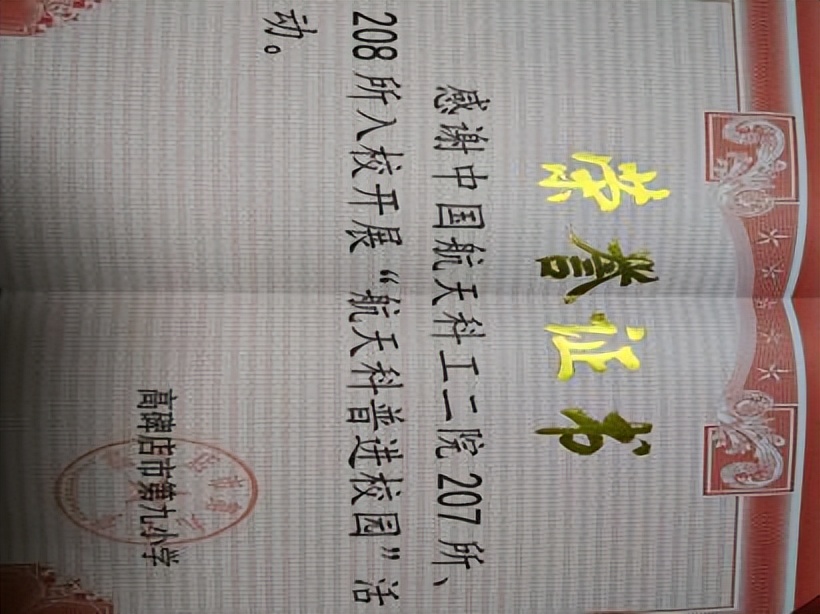 荣誉证书
感谢中国航天科工二院207所、
208所入校开展“航天科普进校园”活
动。
高碑店市第九小学